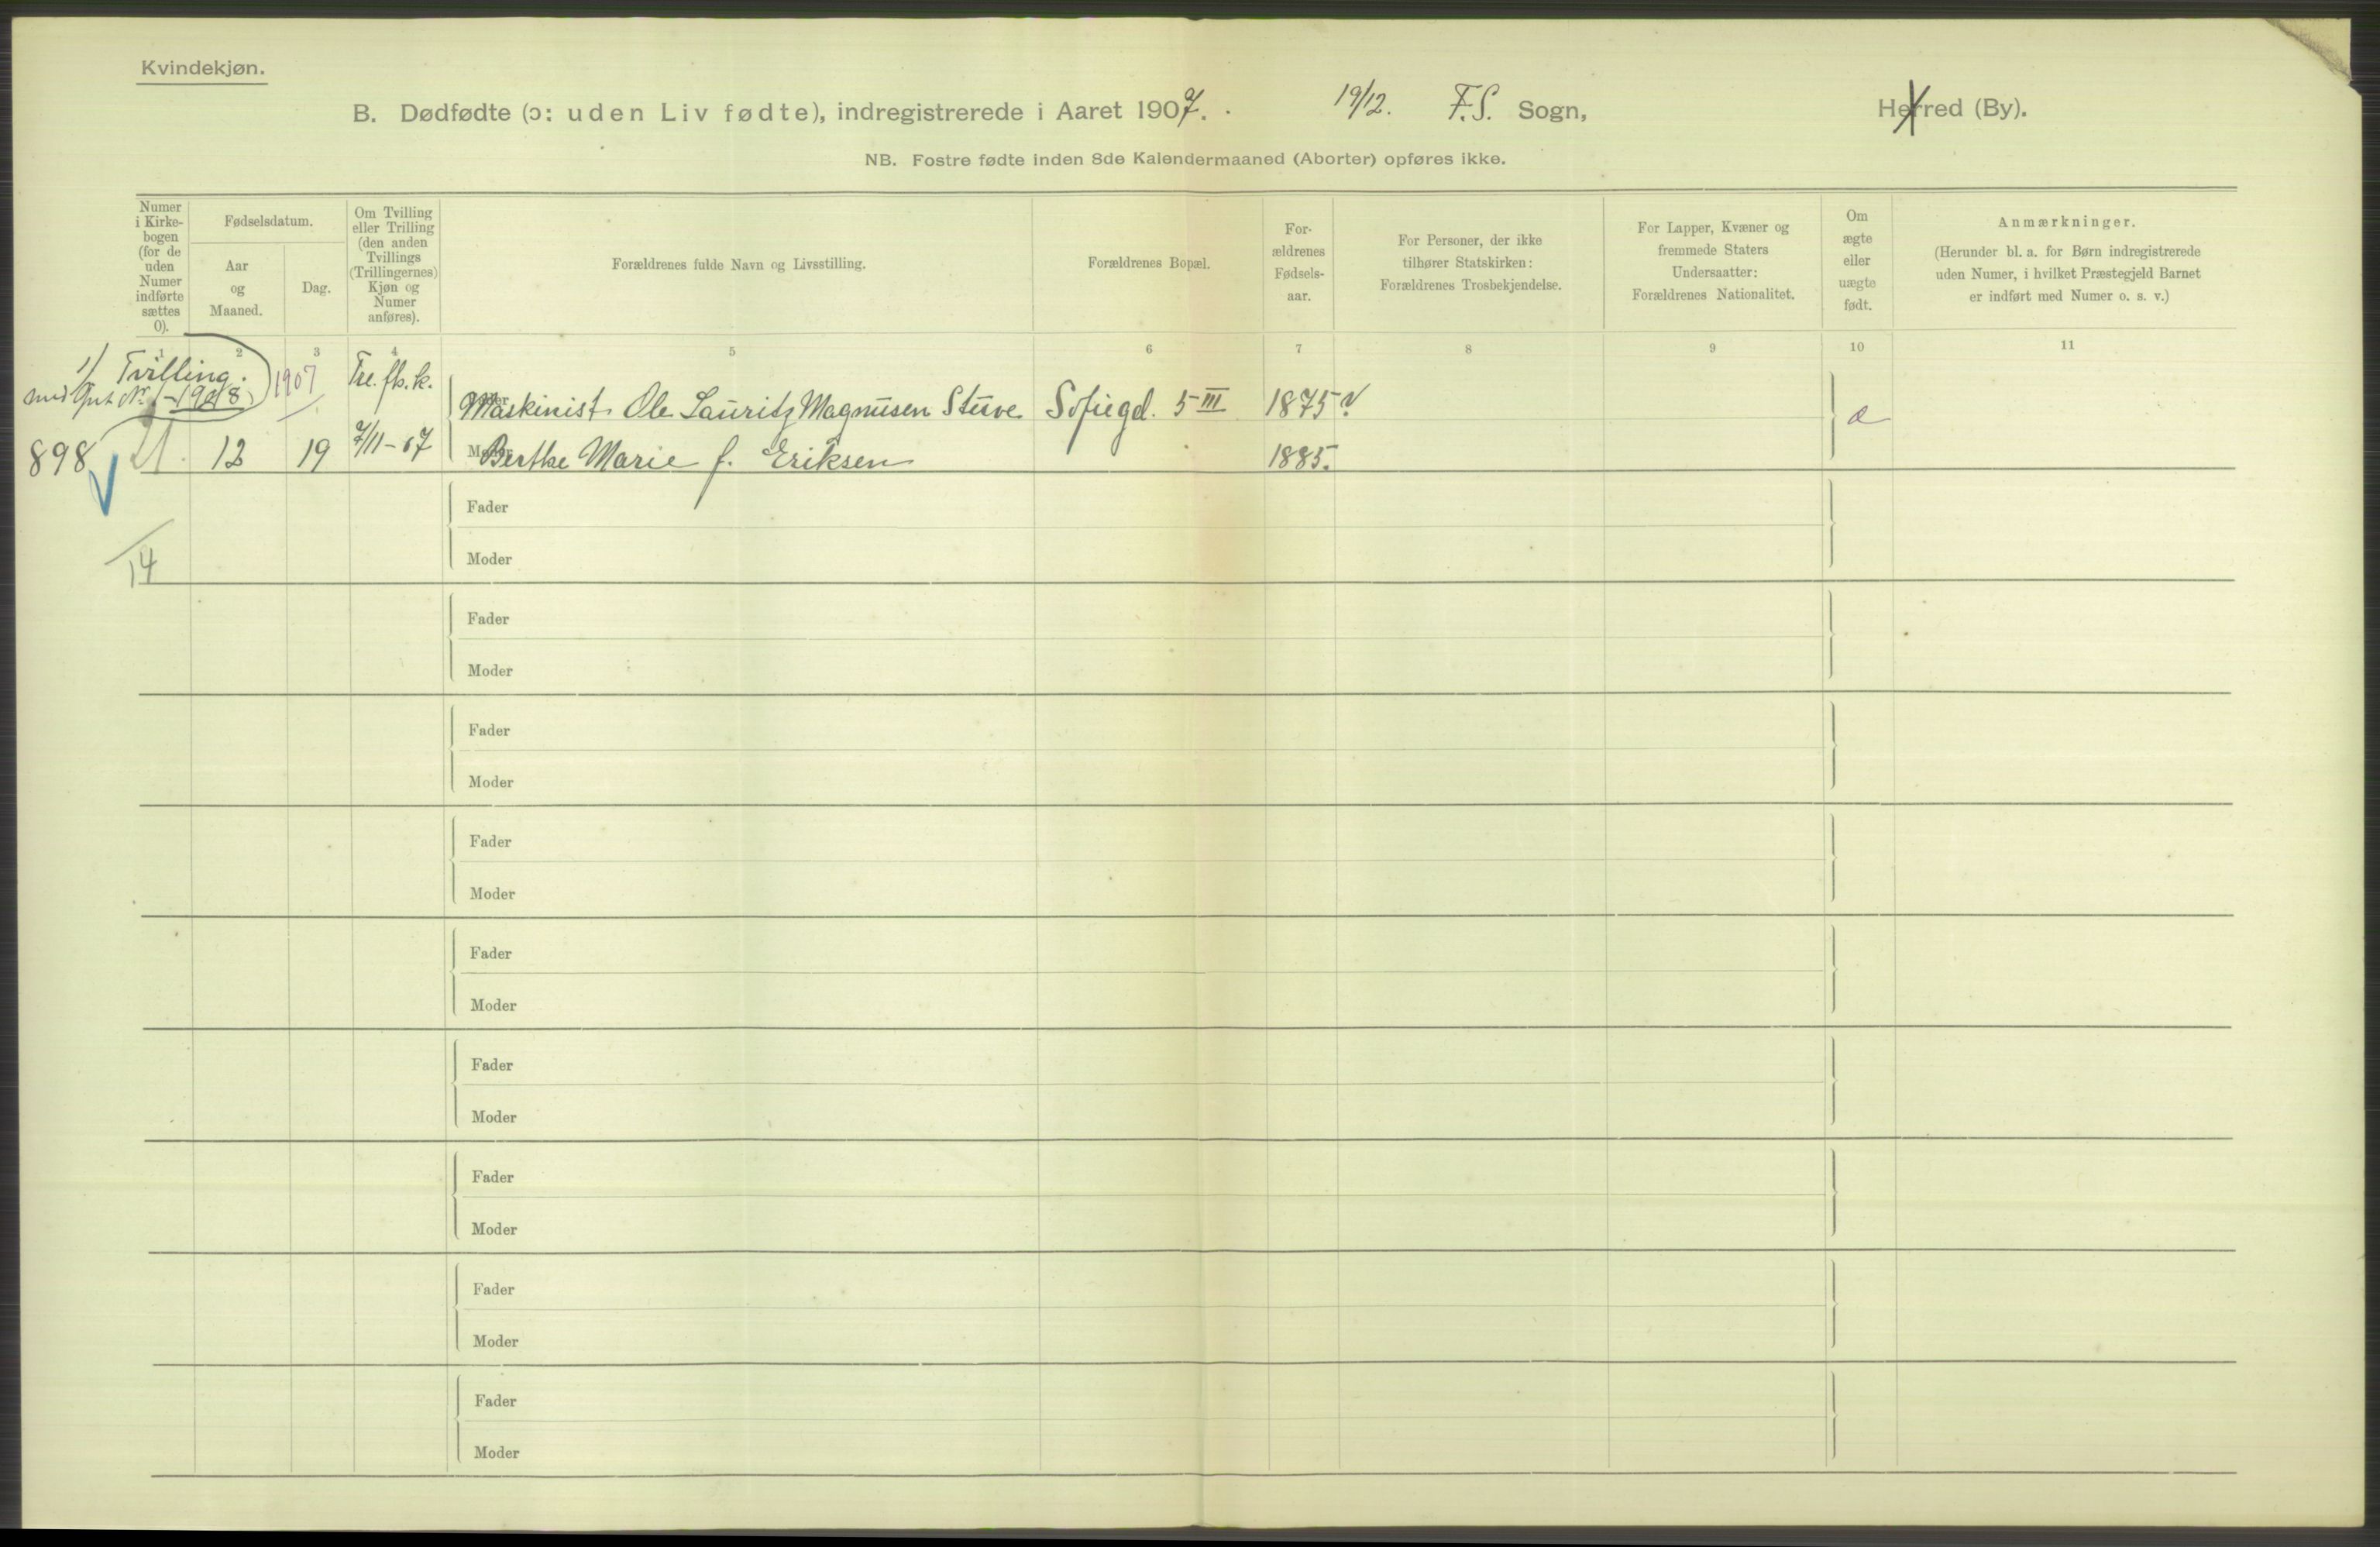 Kvindekjøn.
B. Dødfødte (ɔ: uden Liv fødte), indregistrerede i Aaret 1907. 19/12. F.S. Sogn, Herred (By).
NB. Fostre fødte inden 8de Kalendermaaned (Aborter) opføres ikke.
Numer
i Kirke-
bogen
(for de
uden
Numer
indførte
sættes
0).
Fødselsdatum.
Aar
og
Maaned.
Dag.
Om Tvilling
eller Trilling
(den anden
Tvillings
(Trillingernes)
Kjøn og
Numer
anføres).
Forældrenes fulde Navn og Livsstilling.
Forældrenes Bopæl.
For-
ældrenes
Fødsels-
aar.
For Personer, der ikke
tilhører Statskirken:
Forældrenes Trosbekjendelse.
For Lapper, Kvæner og
fremmede Staters
Undersaatter:
Forældrenes Nationalitet.
Om
ægte
eller
uægte
født.
Anmærkninger.
(Herunder bl. a. for Børn indregistrerede
uden Numer, i hvilket Præstegjeld Barnet
er indført med Numer o. s. v.)
1 2 3 4 5 6 7 8 9 10 11
1/ Tvilling.
1907
Maskinist Ole Lauritz Magnusen Stuve Sofiegd. 5 III 1875
898 21. 12 19 7/11-07 Moder Berthe Marie f. Eriksen 1885.
Fader
Moder
14
Fader
Moder
Fader
Moder
Fader
Moder
Fader
Moder
Fader
Moder
Fader
Moder
Fader
Moder
Fader
Moder